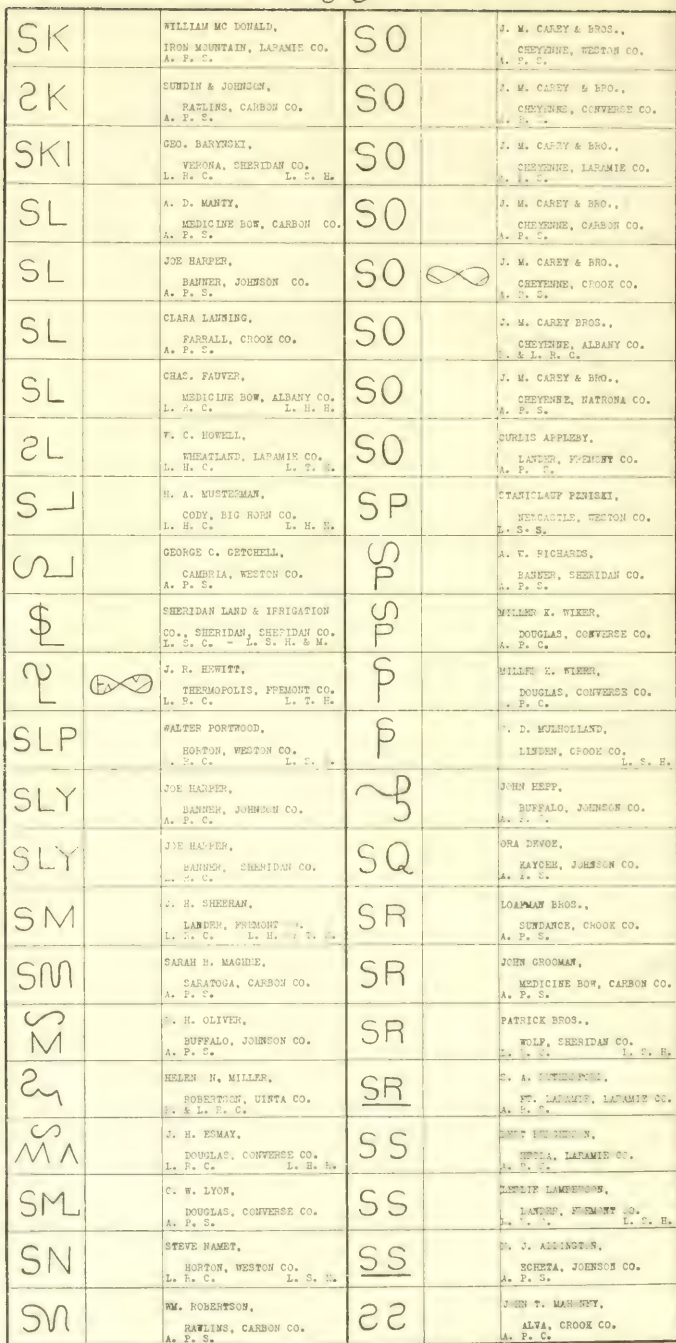 SK
WILLIAM MC DONALD,
IRON MOUNTAIN, LARAMIE CO.
A. P. S.
SK
SUNDIN & JOHNSON,
RAWLINS, CARBON CO.
A. P. S.
SKI
GEO. BARYNSKI,
VERONA, SHERIDAN CO.
L. R. C. L. S. H.
SL
A. D. MANTY,
MEDICINE BOW, CARBON CO.
A. P. S.
SL
JOE HARPER,
BANNER, JOHNSON CO.
A. P. S.
SL
CLARA LANNING,
FARRALL, CROOK CO.
A. P. S.
SL
CHAS. FAUVER,
MEDICINE BOW, ALBANY CO.
L. R. C. L. H. H.
SL
W. C. HOWELL,
WHEATLAND, LARAMIE CO.
L. H. C. L. T.
S
H. A. MUSTERMAN,
CODY, BIG HORN CO.
L. H. C. L. H. H.
GEORGE C. GETCHELL,
CAMBRIA, WESTON CO.
A. P. S.
SHERIDAN LAND & IRRIGATION
CO., SHERIDAN, SHERIDAN CO.
L. S. C. - L. S. H. & M.
J. R. HEWITT,
THERMOPOLIS, FREMONT CO.
L. R. C. L. T. H.
SLP
WALTER PORTWOOD,
HORTON, WESTON CO.
R. C. L. S.
SLY
JOE HARPER,
BANNER, JOHNSON CO.
A. P. C.
SLY
JOE HARPER,
BANNER, SHERIDAN CO.
R. C.
SM
J. H. SHEEHAN,
LANDER, FREMONT
SM
SARAH B. MAGHEE,
SARATOGA, CARBON CO.
A. P. S.
S
M
H. OLIVER,
BUFFALO, JOHNSON CO.
A. P. S.
HELEN N. MILLER,
ROBERTSON, UINTA CO.
& L. R. C.
J. H. ESMAY,
DOUGLAS, CONVERSE CO.
L. R. C. L. H.
SML
C. W. LYON,
DOUGLAS, CONVERSE CO.
A. P. S.
SN
STEVE NAMET,
HORTON, WESTON CO.
L. R. C. L. S.
SN
WM. ROBERTSON,
RAWLINS, CARBON CO.
A. P. S.
SO
J. M. CAREY & BROS.,
CHEYENNE, WESTON CO.
A. P. S.
SO
J. M. CAREY & BRO.,
CHEYENNE, CONVERSE CO.
SO
J. M. CAREY & BRO.,
CHEYENNE, LARAMIE CO.
SO
J. M. CAREY & BRO.,
CHEYENNE, CARBON CO.
A. P. S.
SO
J. M. CAREY & BRO.,
CHEYENNE, CROOK CO.
SO
J. M. CAREY BROS.,
CHEYENNE, ALBANY CO.
& L. R. C.
SO
J. M. CAREY & BRO.,
CHEYENNE, NATRONA CO.
A. P. S.
SO
CURLIS APPLEBY,
LANDER, FREMONT CO.
A. P. S.
SP
NEWCASTLE, WESTON CO.
L. S. S.
S
P
A. W. RICHARDS,
BANNER, SHERIDAN CO.
A. P. S.
S
P
MILLER K. WIKER,
DOUGLAS, CONVERSE CO.
A. P. C.
DOUGLAS, CONVERSE CO.
P. C.
D. MULHOLLAND,
LINDEN, CROOK CO.
L. S. H.
JOHN HEPP,
BUFFALO, JOHNSON CO.
SQ
ORA DEVOE,
KAYCEE, JOHNSON CO.
SR
LOAFMAN BROS.,
SUNDANCE, CROOK CO.
A. P. S.
SR
JOHN GROOMAN,
MEDICINE BOW, CARBON CO.
A. P. S.
SR
PATRICK BROS.,
WOLF, SHERIDAN CO.
L. S. H.
SR
FT. LARAMIE, LARAMIE CO.
SS
LARAMIE CO.
SS
LESLIE LAMPERSON,
LANDER, FREMONT CO.
L. S. H.
SS
ECHETA, JOHNSON CO.
A. P. S.
SS
JOHN T. MAHONEY,
ALVA, CROOK CO.
A. P. C.